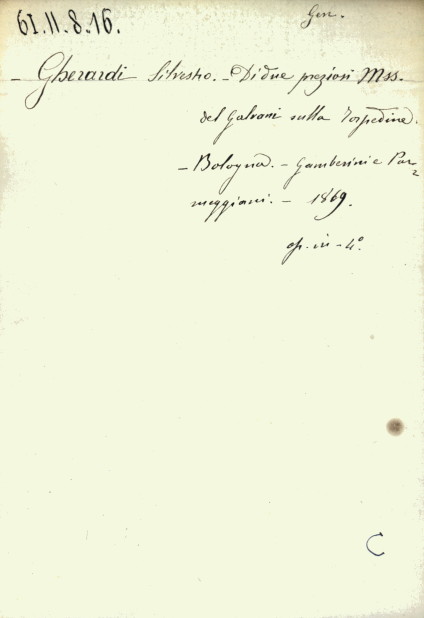 61.11.8.16.
Gen.
- Gherardi Silvestro. - Di due preziosi Mss.
del Galvani sulla Torpedine.
- Bologna. - Gamberini e Par-
meggiani. - 1869.
op. in - 4°.
C